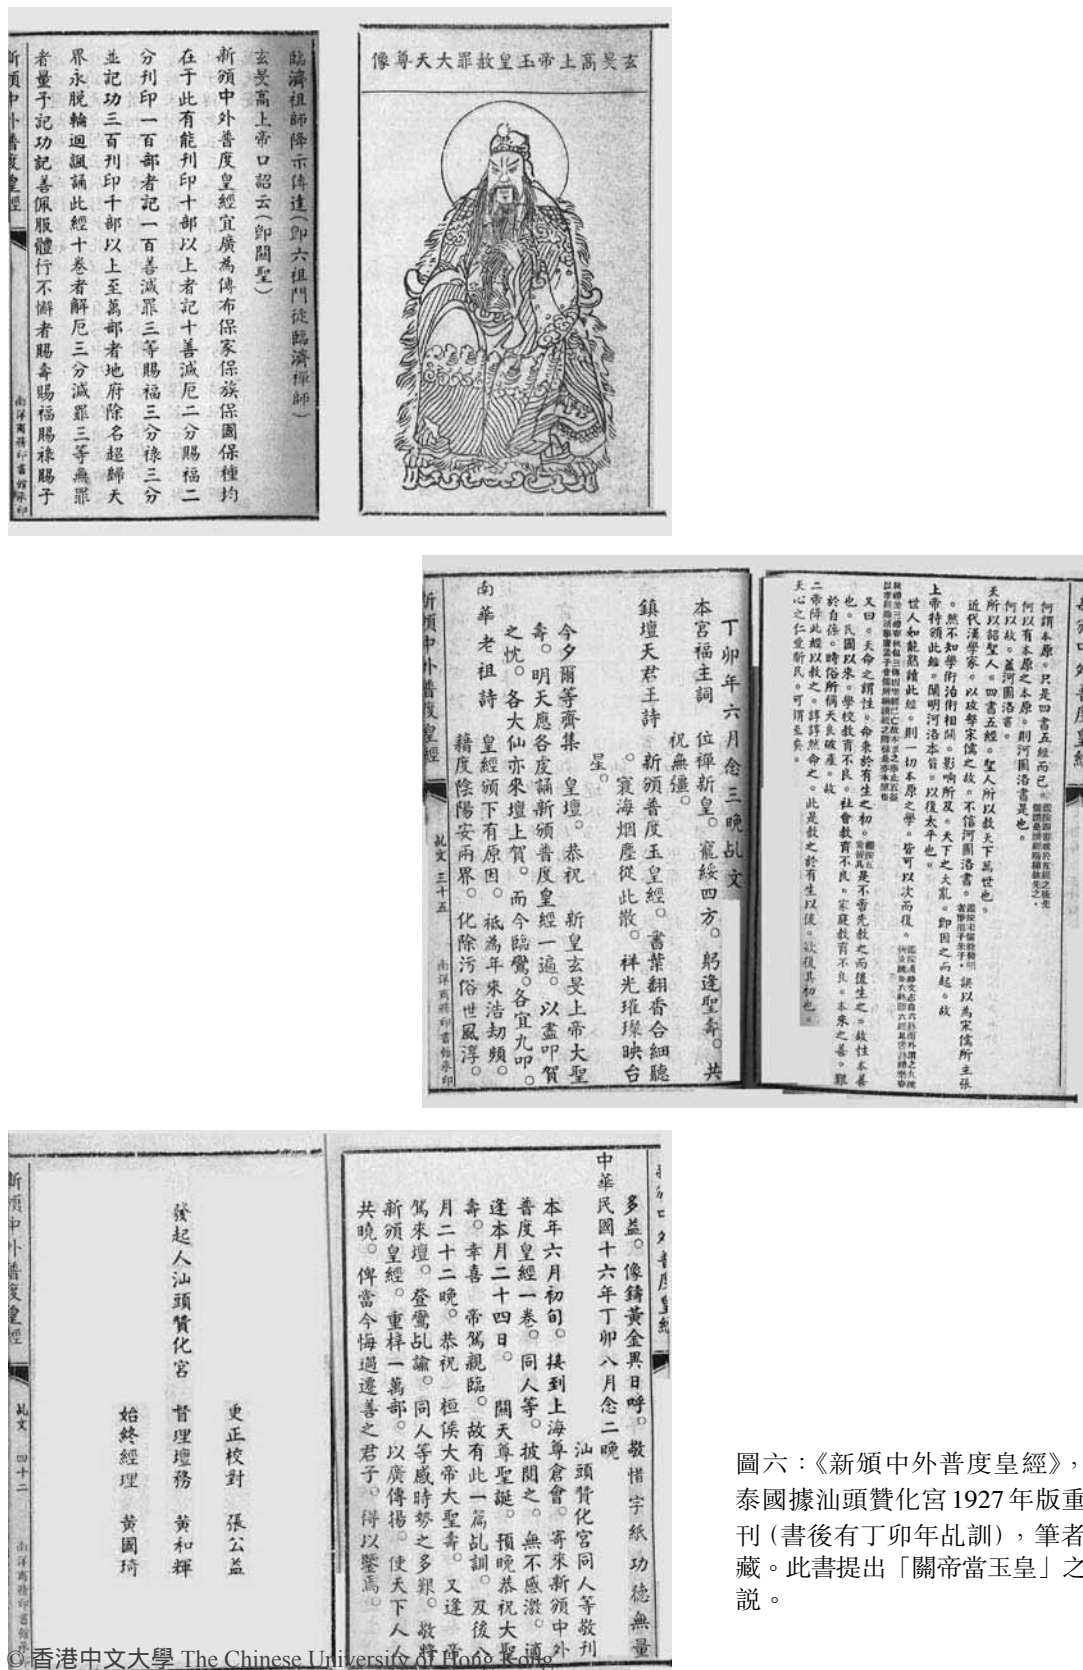 玄旻高上帝玉皇赦罪大天尊像
臨濟祖師降示傳達(卽六祖門徒臨濟禪師)
玄旻高上帝口詔云(卽關聖)
新頒中外普度皇經宜廣為傳布保家保族保國保種均
在于此有能刊印十部以上者記十善滅厄二分賜福二
分刊印一百部者記一百善滅罪三等賜福三分祿三分
並記功三百刊印千部以上至萬部者地府除名超歸天
界永脫輪迴諷誦此經十卷者解厄三分滅罪三等無罪
者量予記功記善佩服體行不懈者賜壽賜福賜祿賜子
新頒中外普度皇經
南洋商務印書館承印
何謂本原。只是四書五經而已。
何以有本原之本原。則河圖洛書是也。
何以故。蓋河圖洛書。
天所以詔聖人。四書五經。聖人所以教天下萬世也。
近代漢學家。以攻擊宋儒之故。不信河圖洛書。誤以為宋儒所主張
。然不知學術治術相關。影响所及。天下之大亂。卽因之而起。故
上帝特頒此經。闡明河洛本旨。以復太平也。
世人如能熟讀此經。則一切本原之學。皆可以次而復。
又曰。天命之謂性。命秉於有生之初。是不啻先教之而後生之。故性本善
也。民國以來。學校教育不良。社會教育不良。家庭教育不良。本來之善。艱
於自保。時俗所偁天良破產。故
二帝降此經以教之。諄諄然命之。此是教之於有生以後。欲復其初也。
天心之仁愛斯民。可謂至矣。
丁卯年六月念三晚乩文
本宮福主詞 位禪新皇。寵綏四方。躬逢聖壽。共
祝無疆。
鎮壇天君王詩 新頒普度玉皇經。書葉翻香合細聽
。寰海烟塵從此散。祥光璀璨映台
星。
今夕爾等齊集 皇壇。恭祝 新皇玄旻上帝大聖
壽。明天應各虔誦新頒普度皇經一遍。以盡叩賀
之忱。各大仙亦來壇上賀。而今臨鸞。各宜九叩。
南華老祖詩 皇經頒下有原因。祇為年來浩劫頻。
藉度陰陽安兩界。化除污俗世風淳。
新頒中外普度皇經
乩文 三十五
南洋商務印書館承印
多益。像鑄黃金異日呼。 敬惜字紙功德無量
中華民國十六年丁卯八月念二晚
汕頭贊化宮同人等敬刊
本年六月初旬。接到上海尊倉會。寄來新頒中外
普度皇經一卷。同人等。披閱之。無不感激。適
逢本月二十四日。 關天尊聖誕。預晚恭祝大聖
壽。幸喜 帝駕親臨。故有此一篇乩訓。及後八
月二十二晚。恭祝 桓侯大帝大聖壽。又逢 帝
駕來壇。登鸞乩諭。同人等感時勢之多艱。敬將
新頒皇經。重梓一萬部。以廣傳揚。使天下人人
共曉。俾當今悔過遷善之君子。得以鑒焉。
發起人汕頭贊化宮
更正校對 張公益
督理壇務 黃和輝
始終經理 黃國琦
新頒中外普度皇經
乩文 四十二
南洋商務印書館承印
圖六:《新頒中外普度皇經》,
泰國據汕頭贊化宮1927年版重
刊(書後有丁卯年乩訓),筆者
藏。此書提出「關帝當玉皇」之
說。
© 香港中文大學 The Chinese University of Hong Kong